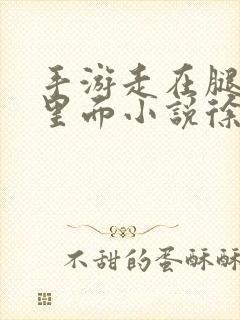 手游走在腿
里而小说徐
不甜的蛋酥酥